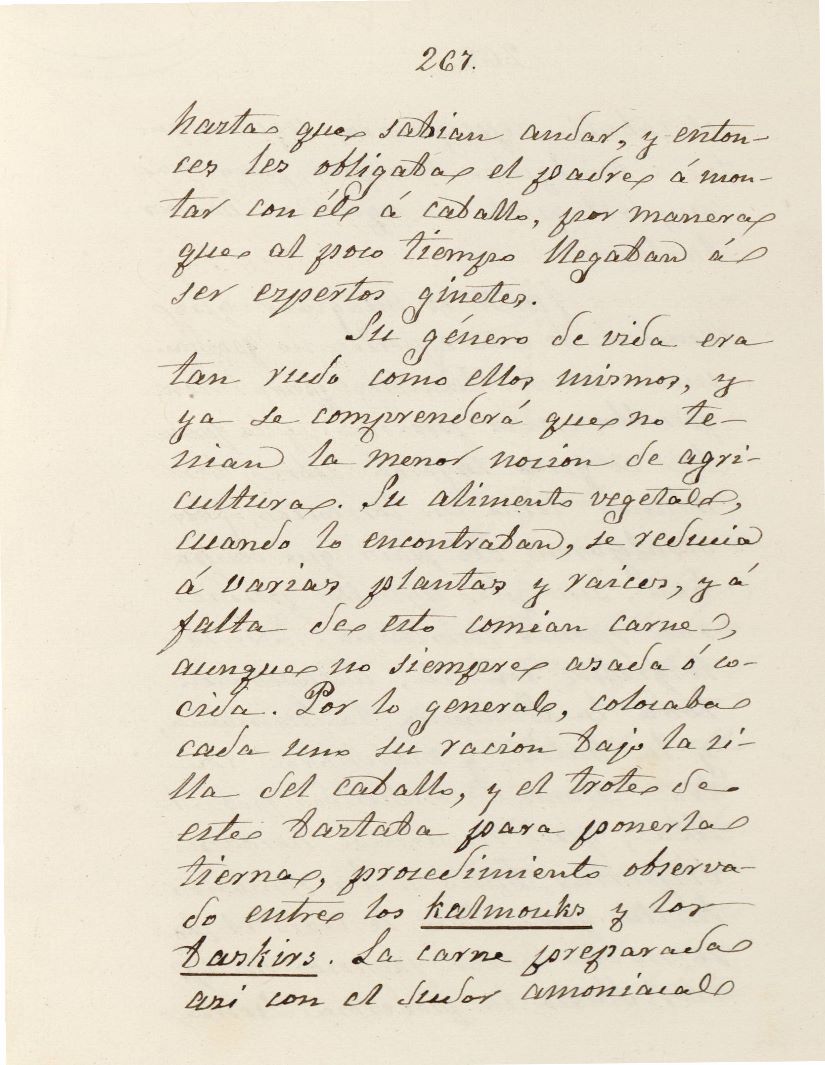 267.
hasta que sabian andar, y enton-
ces les obligaba el padre á mon-
tar con él á caballo, por manera
que al poco tiempo llegaban á
ser expertos ginetes.
Su género de vida era
tan rudo como ellos mismos, y
ya se comprenderá que no te-
nian la menor nocion de agri-
cultura. Su alimento vegetal,
cuando lo encontraban, se reducia
á varias plantas y raices, y á
falta de esto comian carne,
aunque no siempre asada ó co-
cida. Por lo general, colocaba
cada uno su racion bajo la si-
lla del caballo, y el trote de
este bastaba para ponerla
tierna, procedimiento observa-
do entre los kalmouks y los
baskirs. La carne preparada
asi con el sudor amoniacal